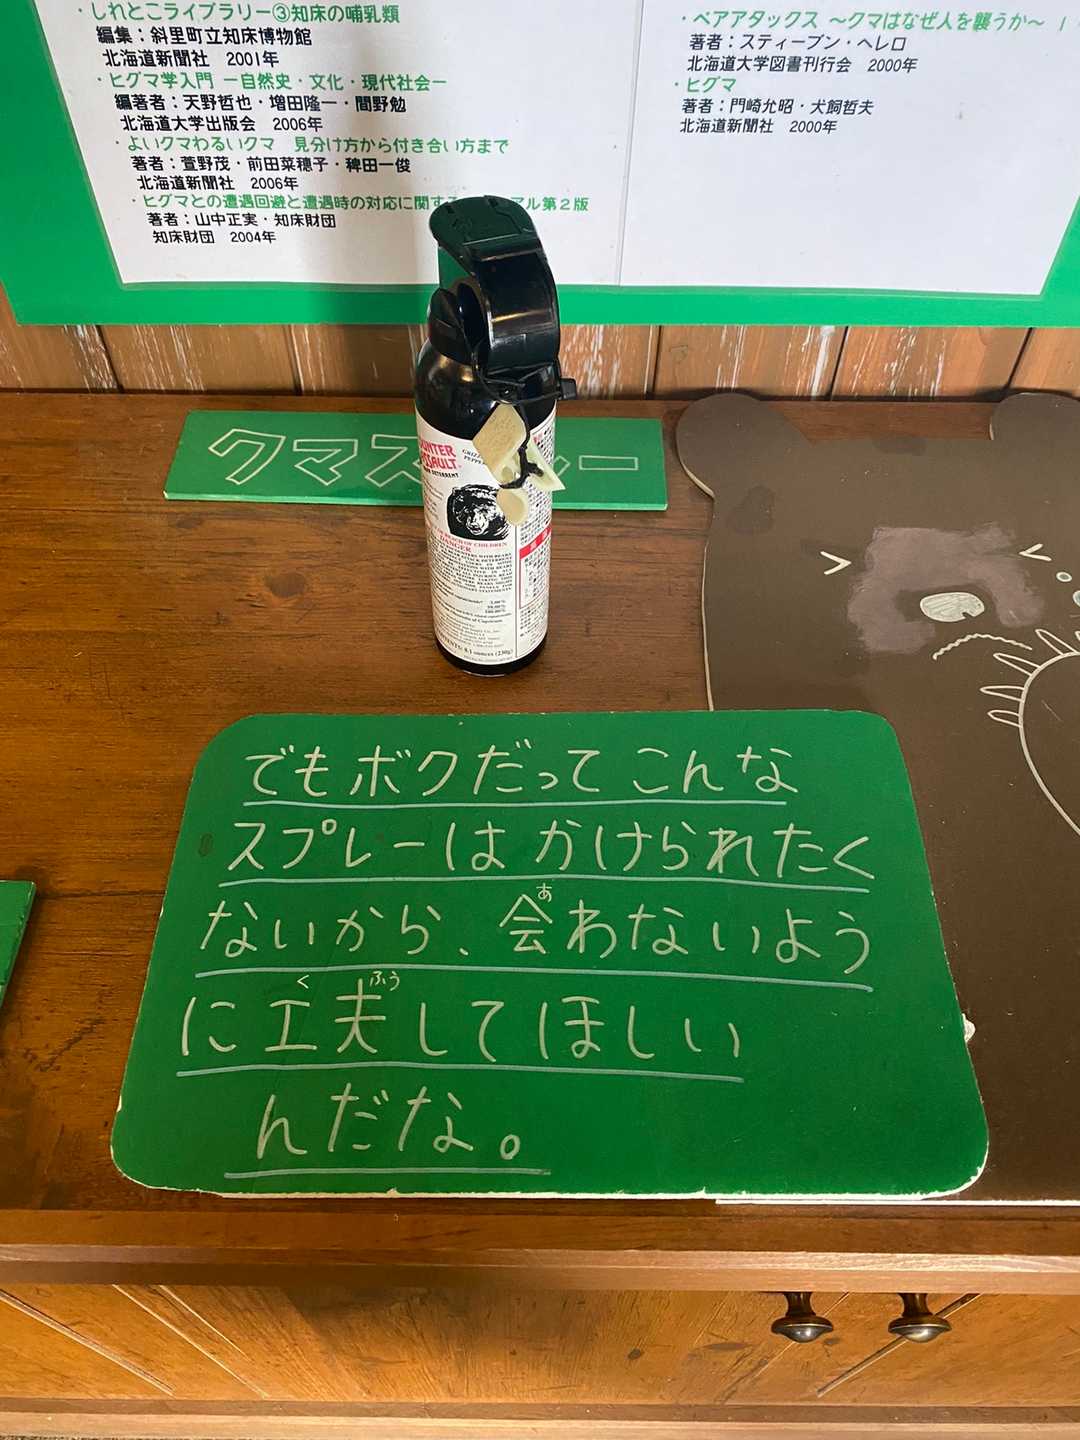 ・しれとこライブラリー③知床の哺乳類
編集：斜里町立知床博物館
北海道新聞社　2001年
・ヒグマ学入門 －自然史・文化・現代社会－
編著者：天野哲也・増田隆一・間野勉
北海道大学出版会　2006年
・よいクマわるいクマ　見分け方から付き合い方まで
著者：萱野茂・前田菜穂子・稗田一俊
北海道新聞社　2006年
・ヒグマとの遭遇回避と遭遇時の対応に関する
アル第２版
著者：山中正実・知床財団
知床財団　2004年
・ベアアタックス ～クマはなぜ人を襲うか～
著者：スティーブン・ヘレロ
北海道大学図書刊行会　2000年
・ヒグマ
著者：門崎允昭・犬飼哲夫
北海道新聞社　2000年
クマス
ー
DANGER
でもボクだって こんな
スプレーは かけられたく
ないから、会わないよう
あ
に工夫してほしい
く ふう
んだな。